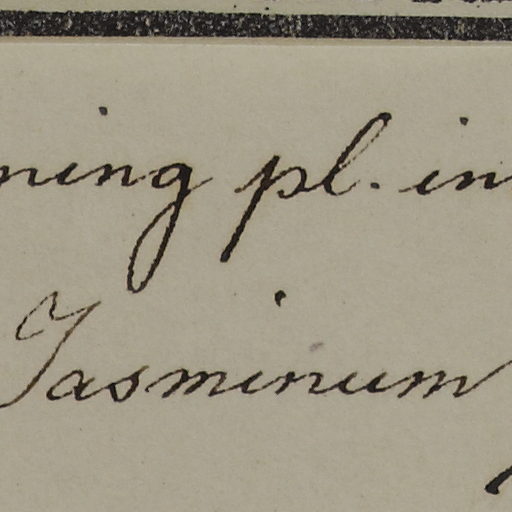 ning pl. in
Jasminum